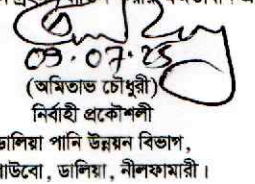 ০৩.০৭.২৫
(অমিতাভ চৌধুরী)
নির্বাহী প্রকৌশলী
ডালিয়া পানি উন্নয়ন বিভাগ,
পাউবো, ডালিয়া, নীলফামারী।